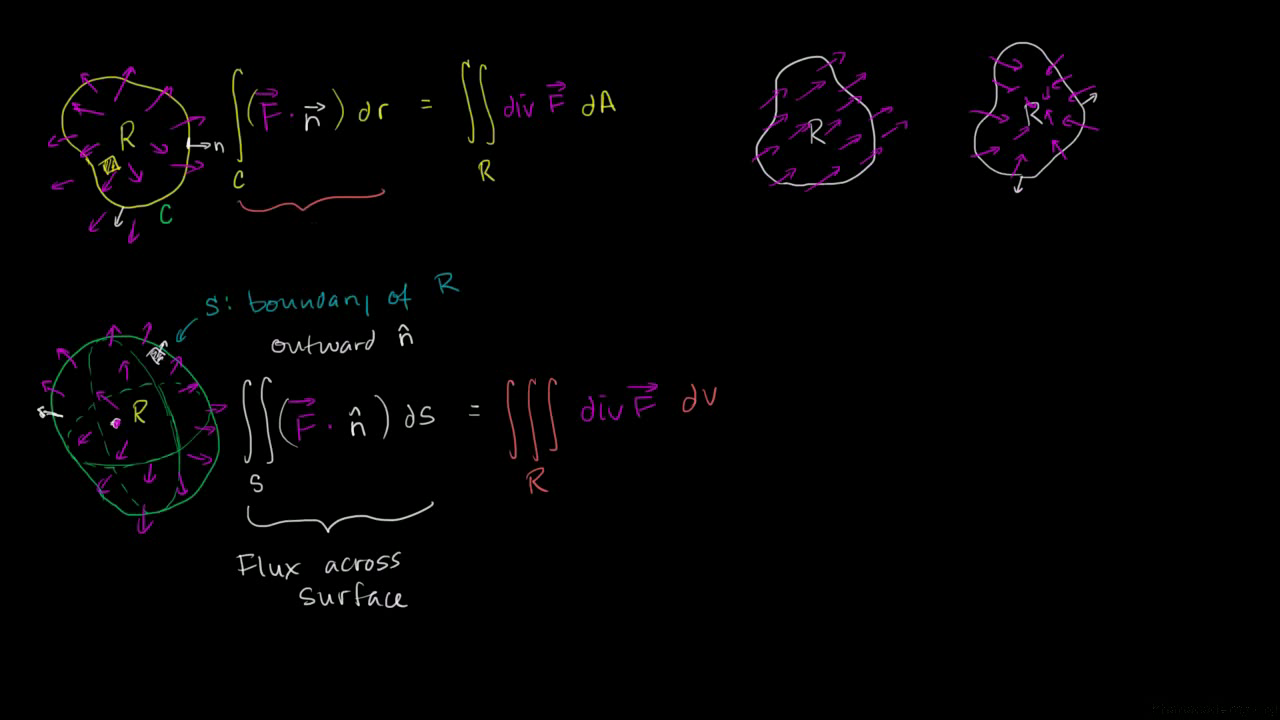 R
n
C
∫_C (F⃗ · n⃗) dr = ∬_R div F⃗ dA
R
R
S: boundary of R
outward n̂
R
∬_S (F⃗ · n̂) ds = ∭_R div F⃗ dv
Flux across
surface